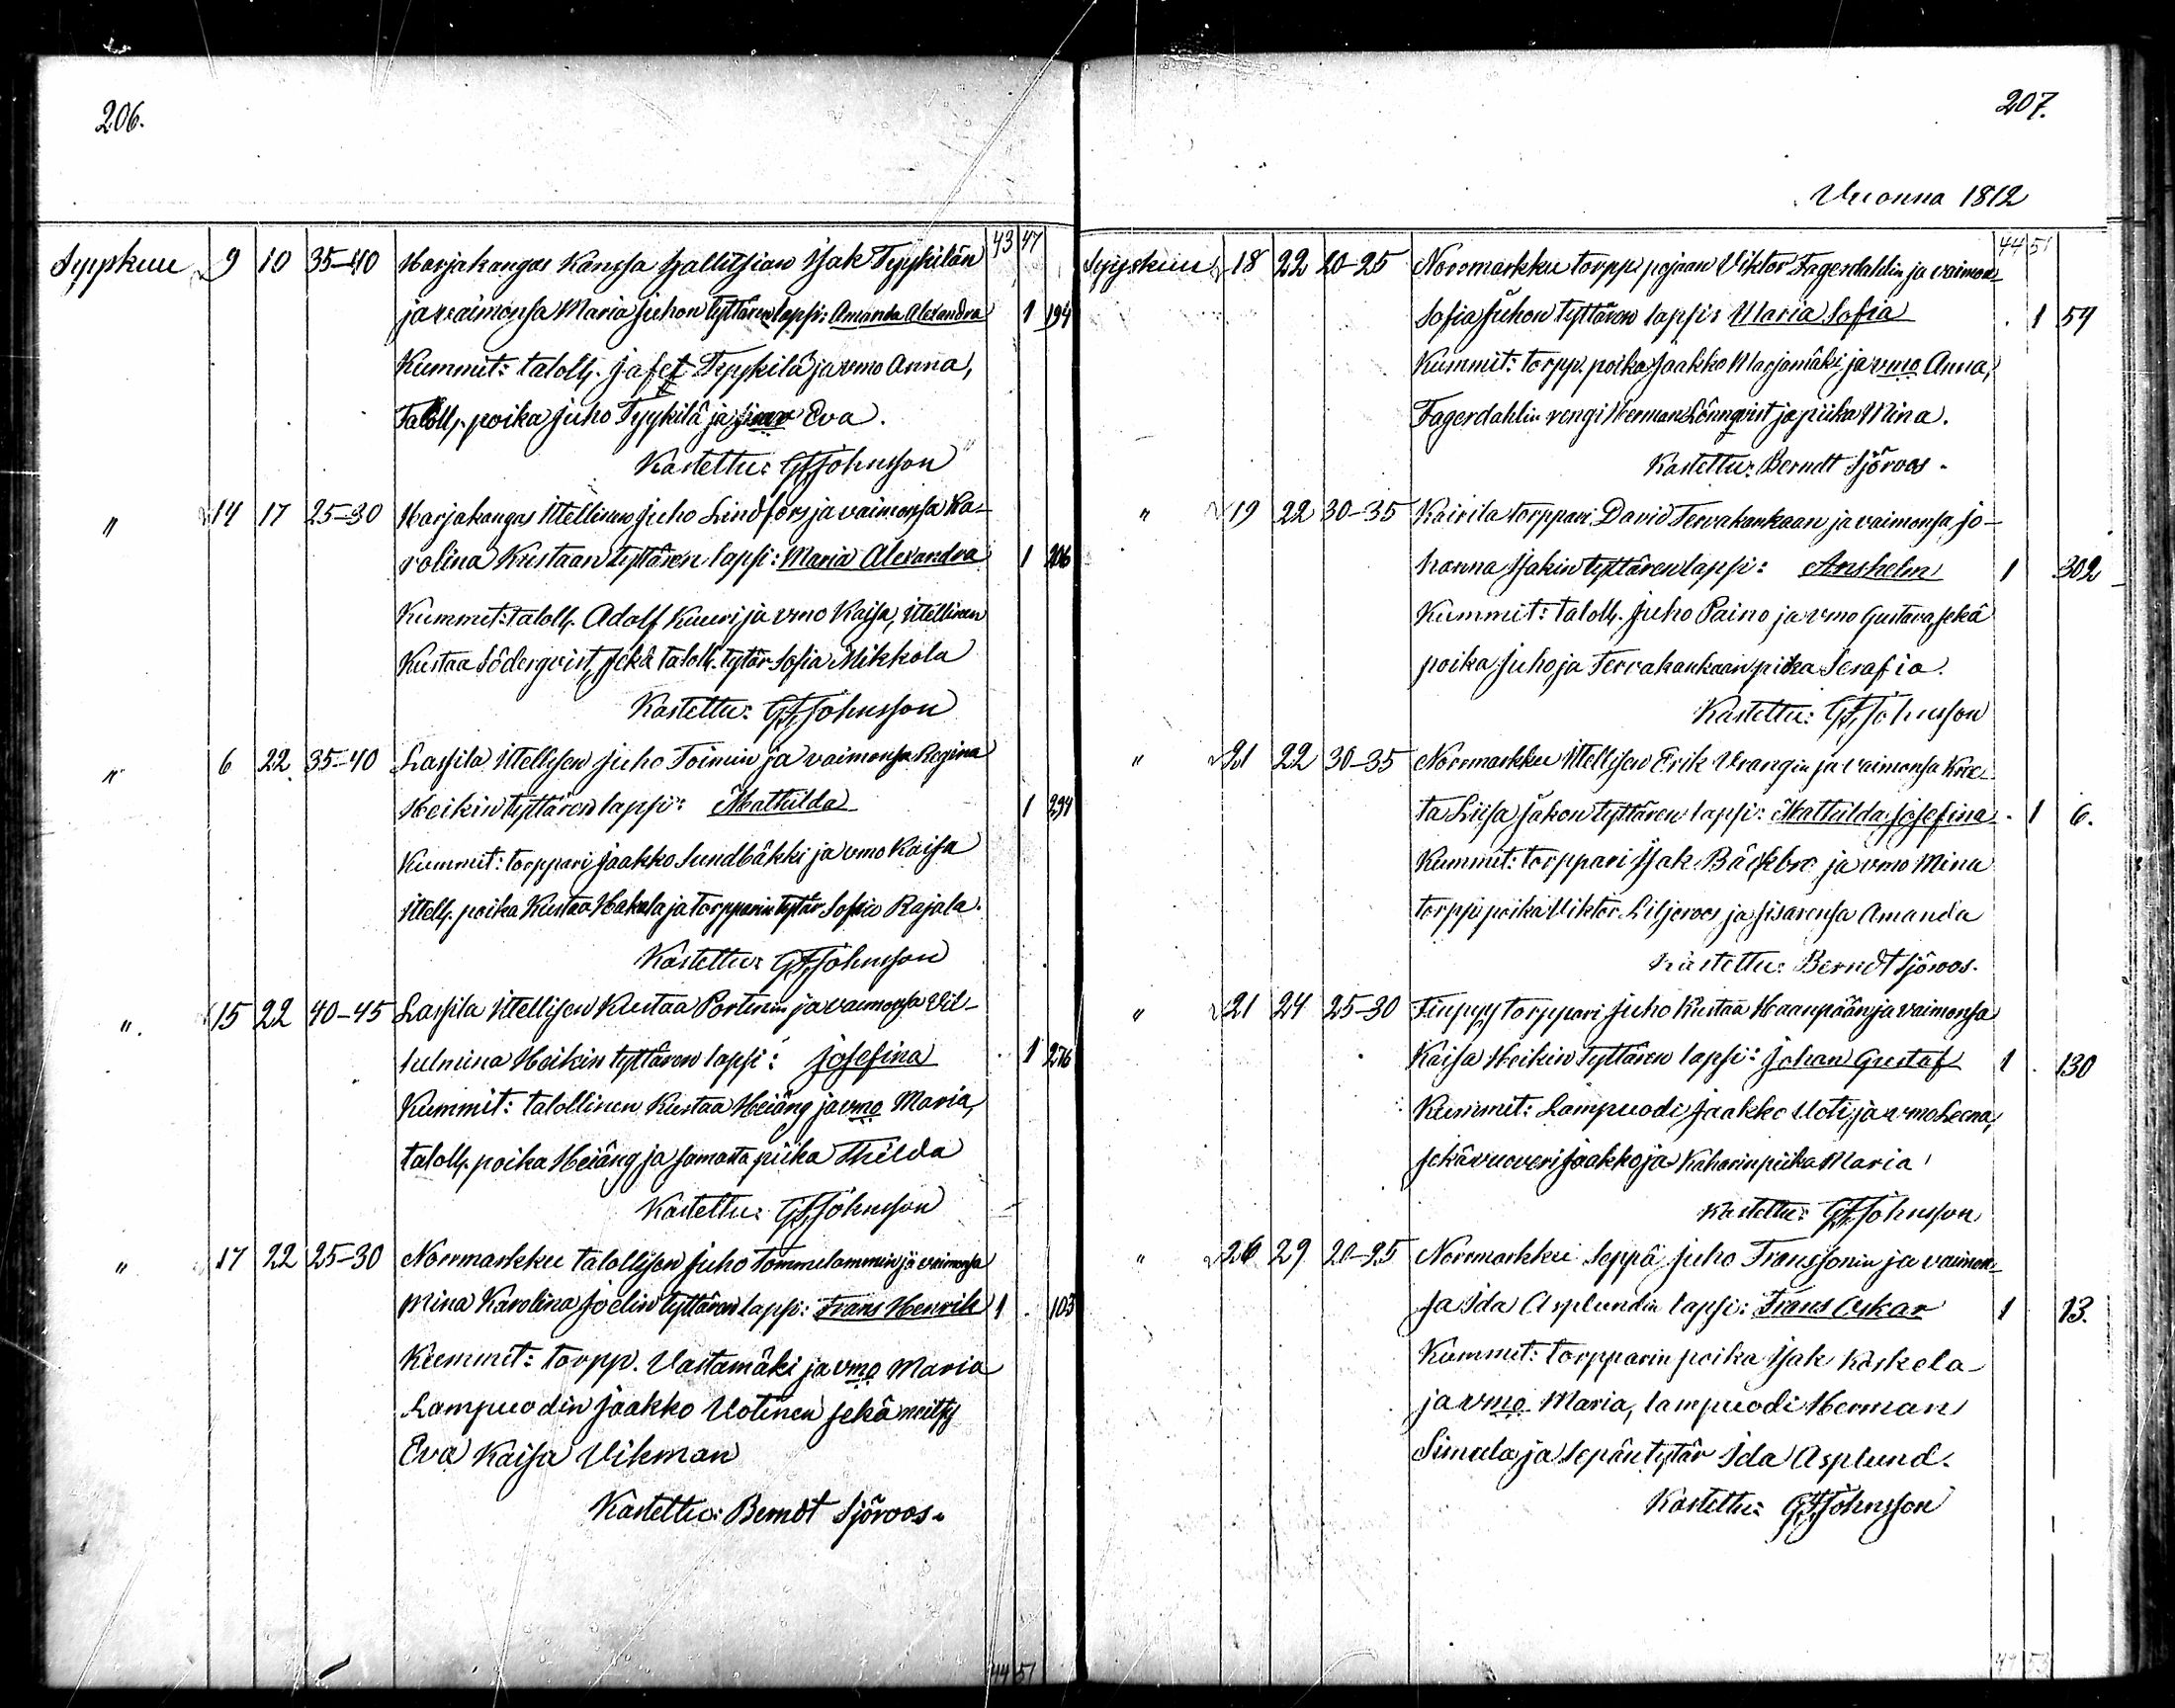 206.
43 47
Syyskuu 9 10 35-40 Harjakangas Kanssa hallitsian Isak Tyykilän
ja vaimonsa Maria Juhon tyttären lapsi: Amanda Alexandra 1 194
Kummit: taloll. Jafet Tyykilä ja vmo Anna,
Taloll. poika Juho Tyykilä ja sisar Eva.
Kastettu: GFJohnsson
" 14 17 25-30 Harjakangas Ittellinen Juho Lindfors ja vaimonsa Ka-
rolina Kustaan tyttären lapsi: Maria Alexandra 1 206
Kummit: taloll. Adolf Kuuri ja vmo Kaisa, Ittellinen
Kustaa Söderqvist, sekä taloll. tytär Sofia Mikkola
Kastettu: GFJohnsson
" 6 22 35-40 Lassila Ittellisen Juho Toimin ja vaimonsa Regina
Heikin tyttären lapsi: Mathilda 1 294
Kummit: torppari Jaakko Sundbäkki ja vmo Kaisa
Ittell. poika Kustaa Hakala ja torpparin tytär Sofia Rajala.
Kastettu: GFJohnsson
" 15 22 40-45 Lassila Ittellisen Kustaa Portinin ja vaimonsa Vil-
helmina Heikin tyttären lapsi: Josefina 1 276
Kummit: talollinen Kustaa Heiäng ja vmo Maria,
taloll. poika Heiäng ja samasta piika Thilda
Kastettu: GFJohnsson
" 17 22 25-30 Norrmarkku talollisen Juho Tommelammin ja vaimonsa
Mina Karolina Joelin tyttären lapsi: Frans Henrik 1 103
Kummit: torpp. Vastamäki ja vmo Maria
Lampuodin Jaakko Uotinen sekä neitsy
Eva Kaisa Vikman
Kastettu: Berndt Sjöroos.
44 51
207.
Vuonna 1812
44 51
Syyskuu 18 22 20-25 Norrmarkku torpp. pojaan Viktor Fagerdahlin ja vaimon-
Sofia Juhon tyttären lapsi: Maria Sofia 1 54
Kummit: torpp. poika Jaakko Marjamäki ja vmo Anna,
Fagerdahlin rengi Herman Lönnqvist ja piika Mina.
Kastettu: Berndt Sjöroos.
" 19 22 30-35 Kairila torppari David Tervakankaan ja vaimonsa Jo-
hanna Isakin tyttären lapsi: Anshelm 1 302
Kummit: taloll. Juho Paino ja vmo Gustava sekä
poika Juho ja Tervakankaan piika Serafia.
Kastettu: GFJohnsson
" 21 22 30-35 Norrmarkku Ittellisen Erik Vrangin ja vaimonsa Kree-
ta Liisa Jakon tyttären lapsi: Mathilda Josefina 1 6.
Kummit: torppari Isak Bäckbro ja vmo Mina
torpp. poika Viktor Liljeroos ja sisarensa Amanda
Kastettu: Berndt Sjöroos.
" 21 24 25-30 Finpyy torppari Juho Kustaa Haanpään ja vaimonsa
Kaisa Heikin tyttären lapsi: Johan Gustaf 1 130
Kummit: Lampuodi Jaakko Uoti, ja vmo Leena,
sekä vuoveri Jaakko ja Kaharin piika Maria
Kastettu: GFJohnsson
" 26 29 20-25 Norrmarkku Seppä Juho Franssonin ja vaimon-
sa Ida Asplundin lapsi: Frans Oskar 1 13.
Kummit: torpparin poika Isak Koskela
ja vmo Maria, lampuodi Herman
Simula ja Sepän tytär Ida Asplund.
Kastettu: GFJohnsson